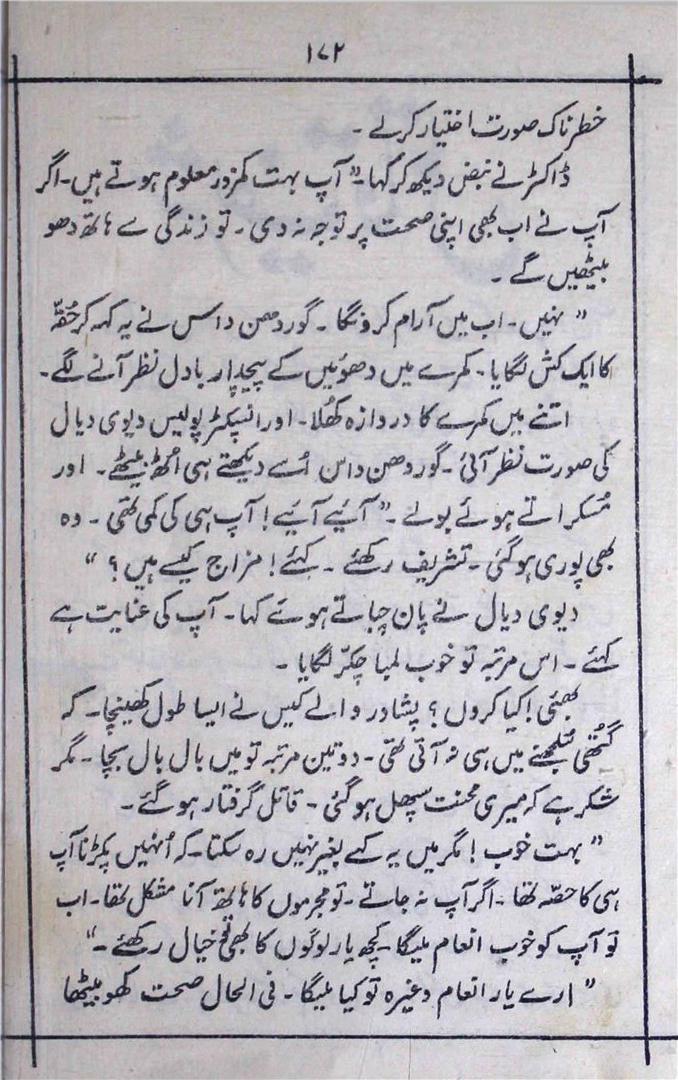 ۱۷۲
خطرناک صورت اختیار کرلے ۔
ڈاکٹر نے نبض دیکھ کر کہا۔" آپ بہت کمزور معلوم ہوتے ہیں۔ اگر
آپ نے اب بھی اپنی صحت پر توجہ نہ دی ۔ تو زندگی سے ہاتھ دھو
بیٹھیں گے ۔
" نہیں ۔ اب میں آرام کرونگا ۔ گوردھن داس نے یہ کہہ کر حُقّہ
کا ایک کش لگایا ۔ کمرے میں دھوئیں کے پیچیدار بادل نظر آنے لگے۔
اتنے میں کمرے کا دروازہ کُھلا۔ اور انسپکٹر پولیس دیوی دیال
کی صورت نظر آئی ۔ گوردھن داس اُسے دیکھتے ہی اُٹھ بیٹھے ۔ اور
مُسکراتے ہوئے بولے ۔" آئیے آئیے ! آپ ہی کی کمی تھی ۔ وہ
بھی پوری ہوگئی ۔ تشریف رکھئے ۔ کہئے ! مزاج کیسے ہیں ؟ "
دیوی دیال نے پان چباتے ہوئے کہا ۔ آپ کی عنایت ہے
کہئے ۔ اس مرتبہ تو خوب لمبا چکّر لگایا ۔
بھئی ! کیا کروں ؟ پشاور والے کیس نے ایسا طول کھینچا ۔ کہ
گُتھی سُلجھنے میں ہی نہ آتی تھی ۔ دو تین مرتبہ تو میں بال بال بچا ۔ مگر
شکر ہے کہ میری محنت سپھل ہوگئی ۔ قاتل گرفتار ہو گئے ۔
" بہت خوب ! مگر میں یہ کہے بغیر نہیں رہ سکتا ۔ کہ اُنہیں پکڑنا آپ
ہی کا حصّہ تھا ۔ اگر آپ نہ جاتے ۔ تو مجرموں کا ہاتھ آنا مشکل تھا ۔ اب
تو آپ کو خوب انعام ملیگا ۔ کچھ یار لوگوں کا بھی خیال رکھئے ۔"
" ارے یار انعام وغیرہ تو کیا ملیگا ۔ فی الحال صحت کھو بیٹھا